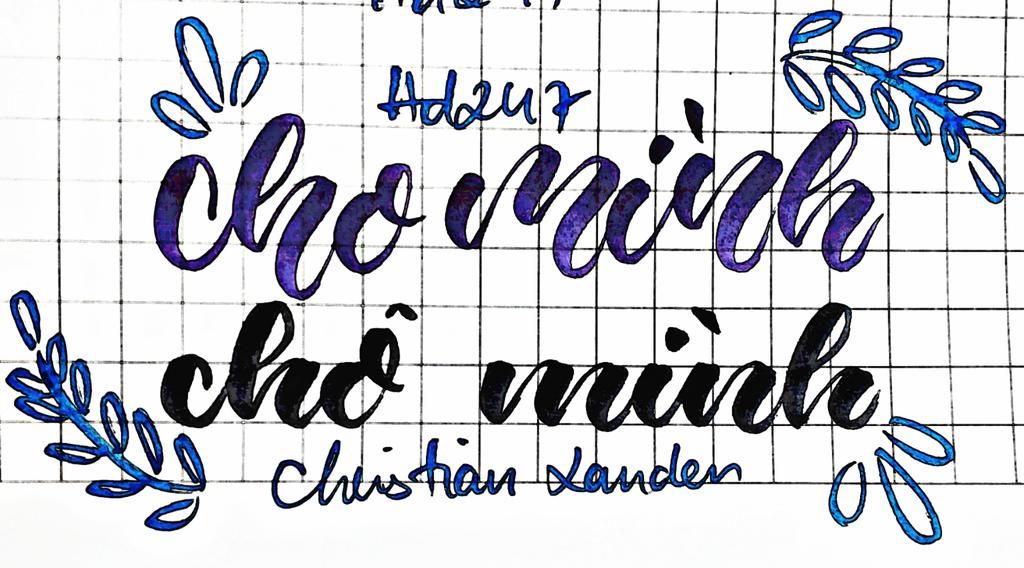 Hd247
cho mình
chô mình
Christian Landen